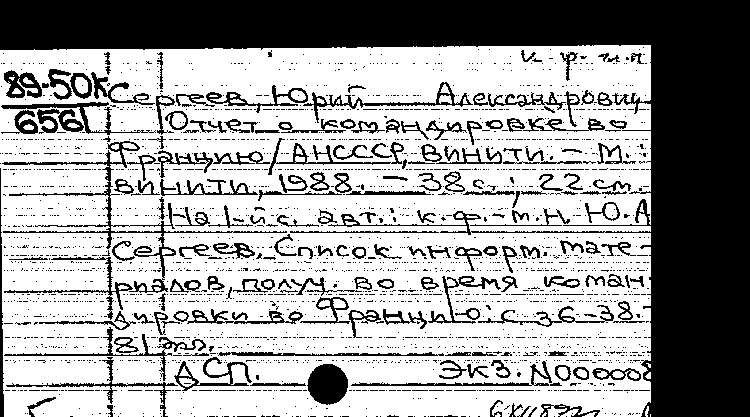 к. ф.-м.н
89-50К
6561
Сергеев, Юрий Александрович
Отчет о командировке во
Францию / АН СССР, ВИНИТИ. – М.:
ВИНИТИ, 1988. – 38 с.; 22 см.
На 1-й с. авт.: к.ф.-м.н. Ю.А
Сергеев. Список информ. мате-
риалов, получ. во время коман
дировки во Францию: с. 36-38. -
81 экз.
ДСП. Экз. N000008